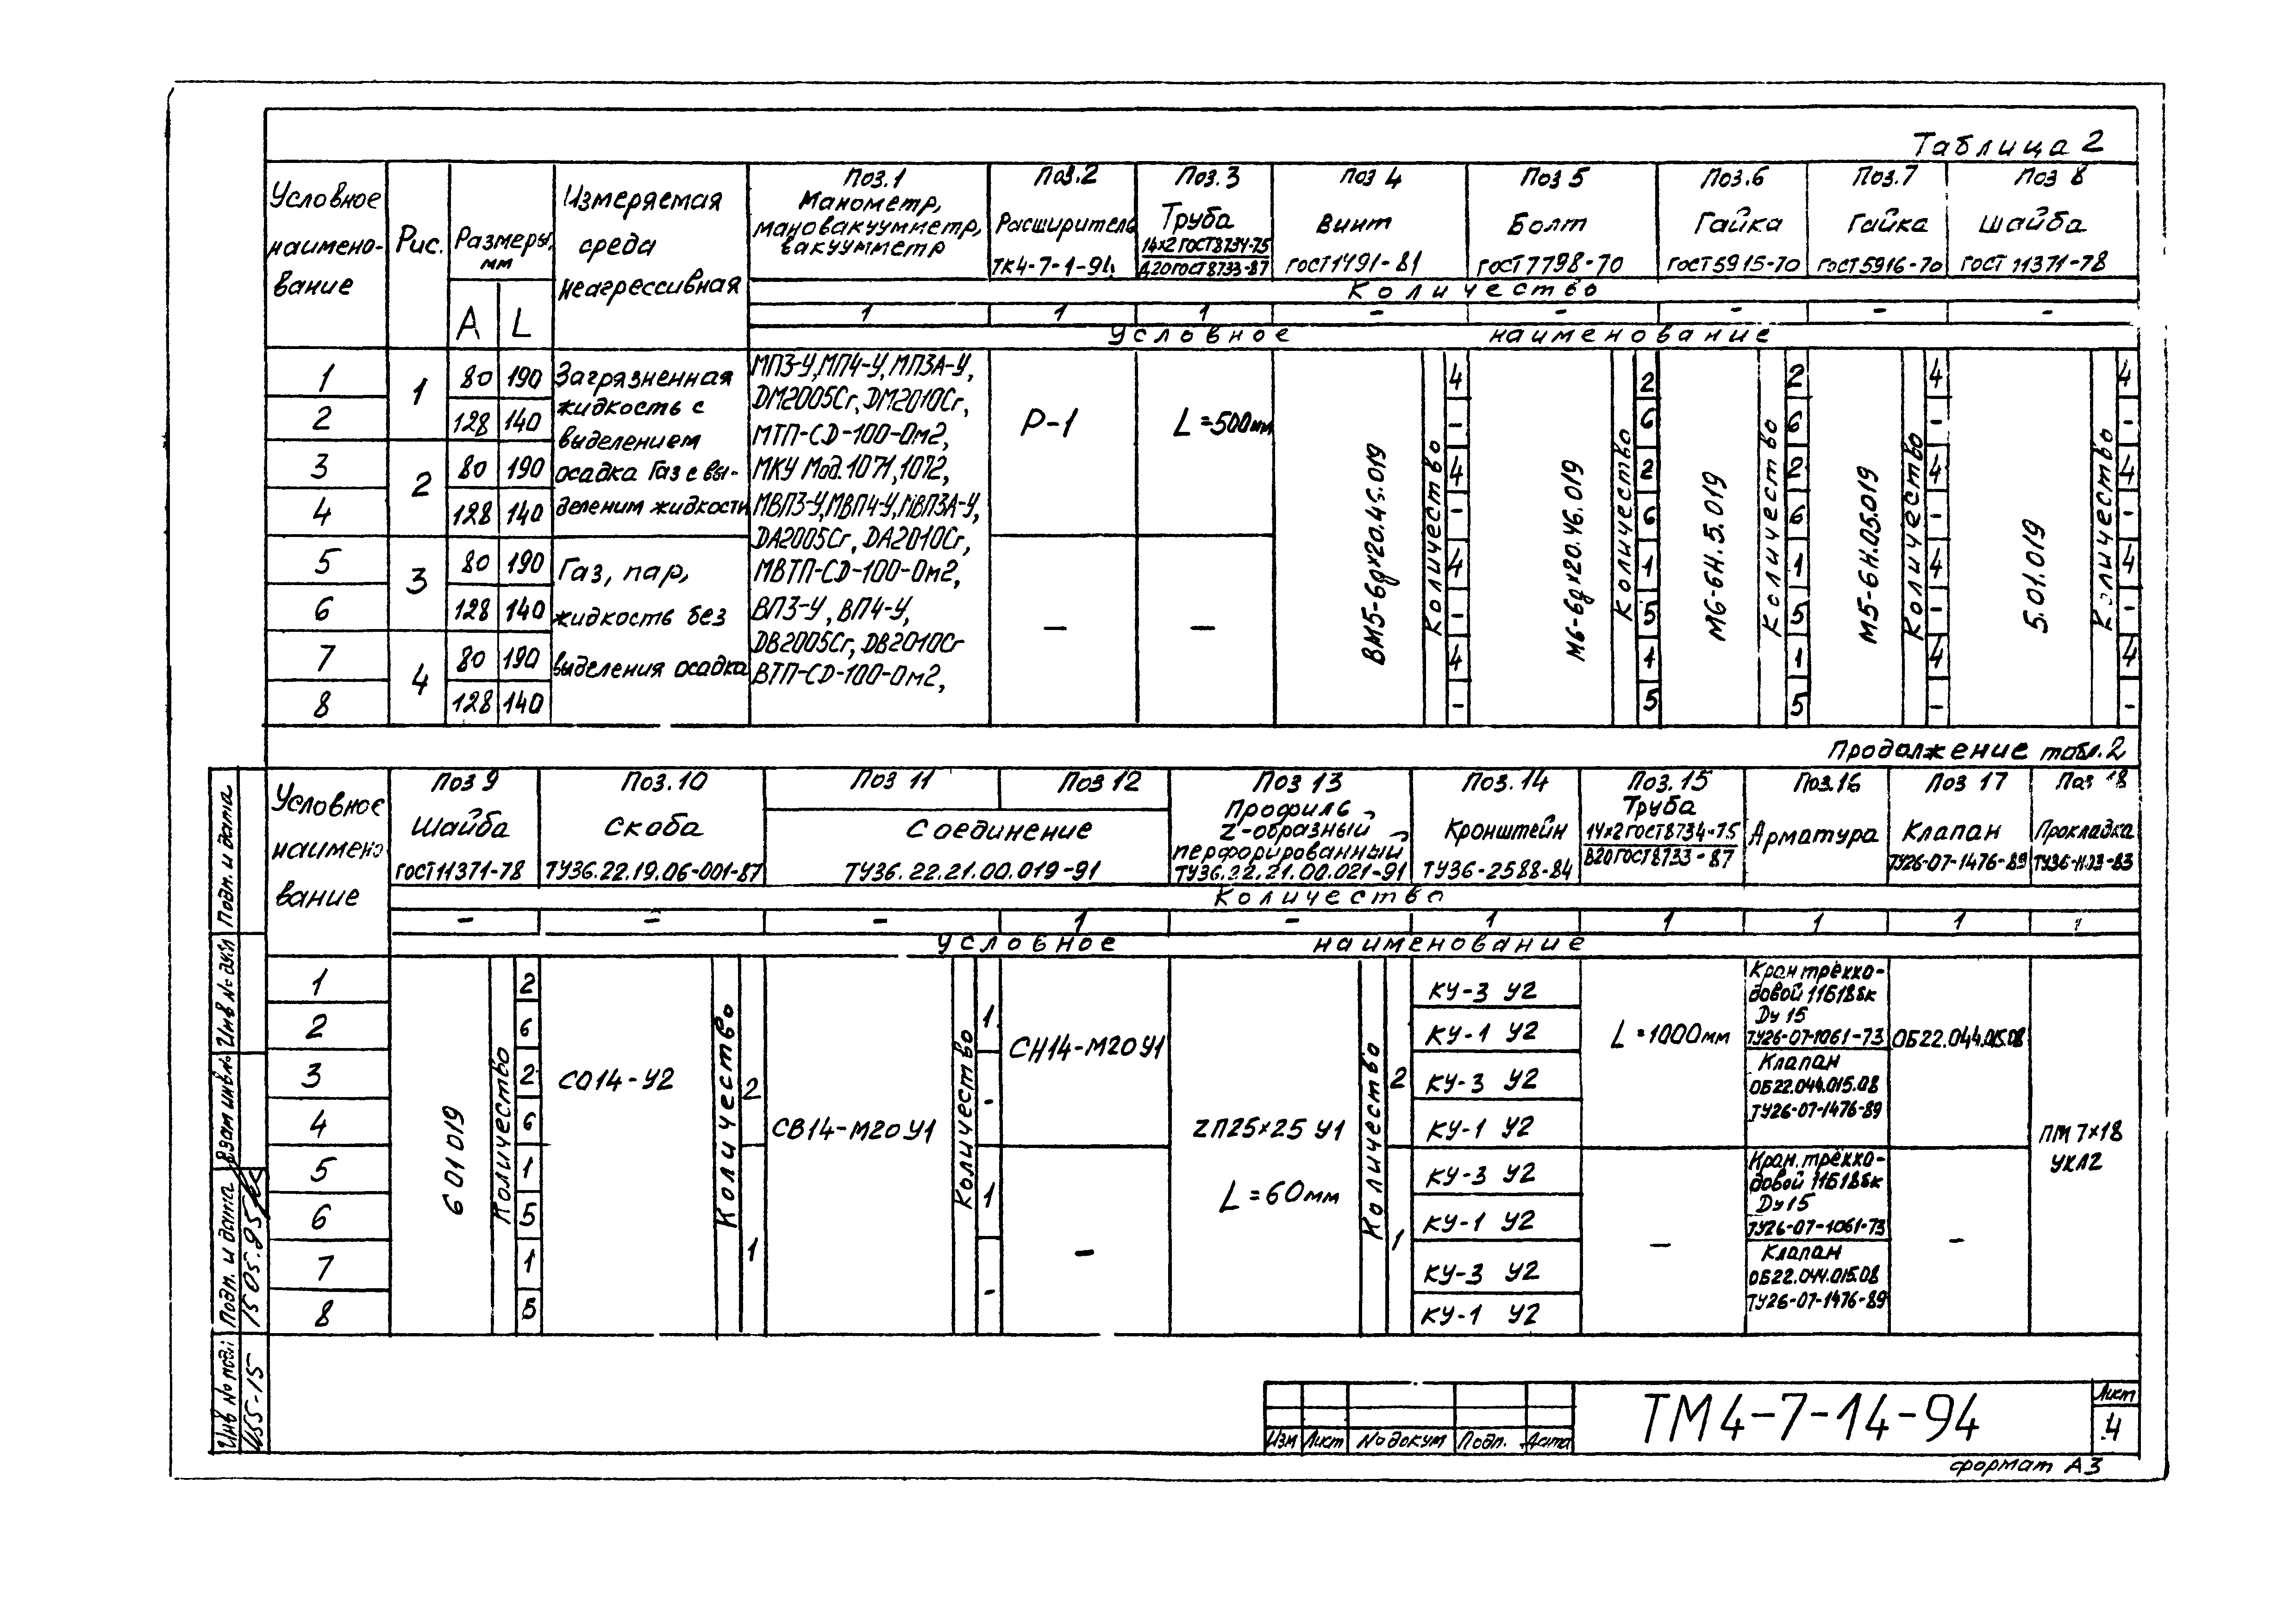 Таблица 2
Условное наимено- вание
Рис.
Размеры, мм
A L
Измеряемая среда неагрессивная
Поз.1 Манометр, мановакуумметр, вакуумметр
Поз.2 Расширитель ТК4-7-1-94
Поз.3 Труба 14×2 ГОСТ8734-75 В20 ГОСТ8733-87
Поз 4 Винт ГОСТ1491-81
Поз 5 Болт ГОСТ7798-70
Поз.6 Гайка ГОСТ5915-70
Поз.7 Гайка ГОСТ5916-70
Поз 8 Шайба ГОСТ 11371-78
Количество
1 1 1 - - - - -
Условное наименование
1 2 3 4 5 6 7 8
1 2 3 4
80 190
128 140
80 190
128 140
80 190
128 140
80 190
128 140
Загрязненная
жидкость с
выделением
осадка Газ с вы-
делением жидкости
Газ, пар,
жидкость без
выделения осадка
МП3-У, МП4-У, МП3А-У,
DM2005Cr, DM2010Cr,
МТП-СD-100-Ом2,
МКУ Мод.1071,1072,
МВП3-У, МВП4-У, МВП3А-У,
DA2005Cr, DA2010Cr,
МВТП-СD-100-Ом2,
ВП3-У, ВП4-У,
DB2005Cr, DB2010Cr
ВТП-СD-100-Ом2,
Р-1
-
L=500мм
-
ВМ5-6g×20.46.019
Количество
4 - 4 - 4 - 4 -
М6-6g×20.46.019
Количество
2 6 2 6 1 5 1 5
М6-6Н.5.019
Количество
2 6 2 6 1 5 1 5
М5-6Н.05.019
Количество
4 - 4 - 4 - 4 -
5.01.019
Количество
4 - 4 - 4 - 4 -
Продолжение табл.2
Условное наимено вание
Поз 9 Шайба ГОСТ11371-78
Поз.10 Скоба ТУ36.22.19.06-001-87
Поз 11 Поз 12
Соединение
ТУ36.22.21.00.019-91
Поз 13 Профиль Z-образный перфорированный ТУ36.22.21.00.021-91
Поз.14 Кронштейн ТУ36-2588-84
Поз.15 Труба 14×2 ГОСТ8734-75 В20 ГОСТ8733-87
Поз.16 Арматура
Поз 17 Клапан ТУ26-07-1476-89
Поз 18 Прокладка
Количество
- - - 1 - 1 1 1 1
Условное наименование
1 2 3 4 5 6 7 8
6 01 019
Количество
2 6 2 6 1 5 1 5
СО14-У2
Количество
2 1
СВ14-М20 У1
Количество
1 - 1 -
СН14-М20 У1
-
ZП25×25 У1
L=60мм
Количество
2 1
КУ-3 У2
КУ-1 У2
КУ-3 У2
КУ-1 У2
КУ-3 У2
КУ-1 У2
КУ-3 У2
КУ-1 У2
L=1000мм
-
Кран треххо-
довой 11Б18бк
Ду 15
ТУ26-07-1061-73
Клапан
ОБ22.044.015.08
ТУ26-07-1476-89
Кран треххо-
довой 11Б18бк
Ду 15
ТУ26-07-1061-73
Клапан
ОБ22.044.015.08
ТУ26-07-1476-89
ОБ22.044.015.08
-
ПМ 7×18
УХЛ2
Подп. и дата
Инв № дубл
Взам инв№
Подп. и дата
15.05.95
Инв № подл
Изм Лист № докум Подп. Дата
ТМ4-7-14-94
Лист
4
формат А3